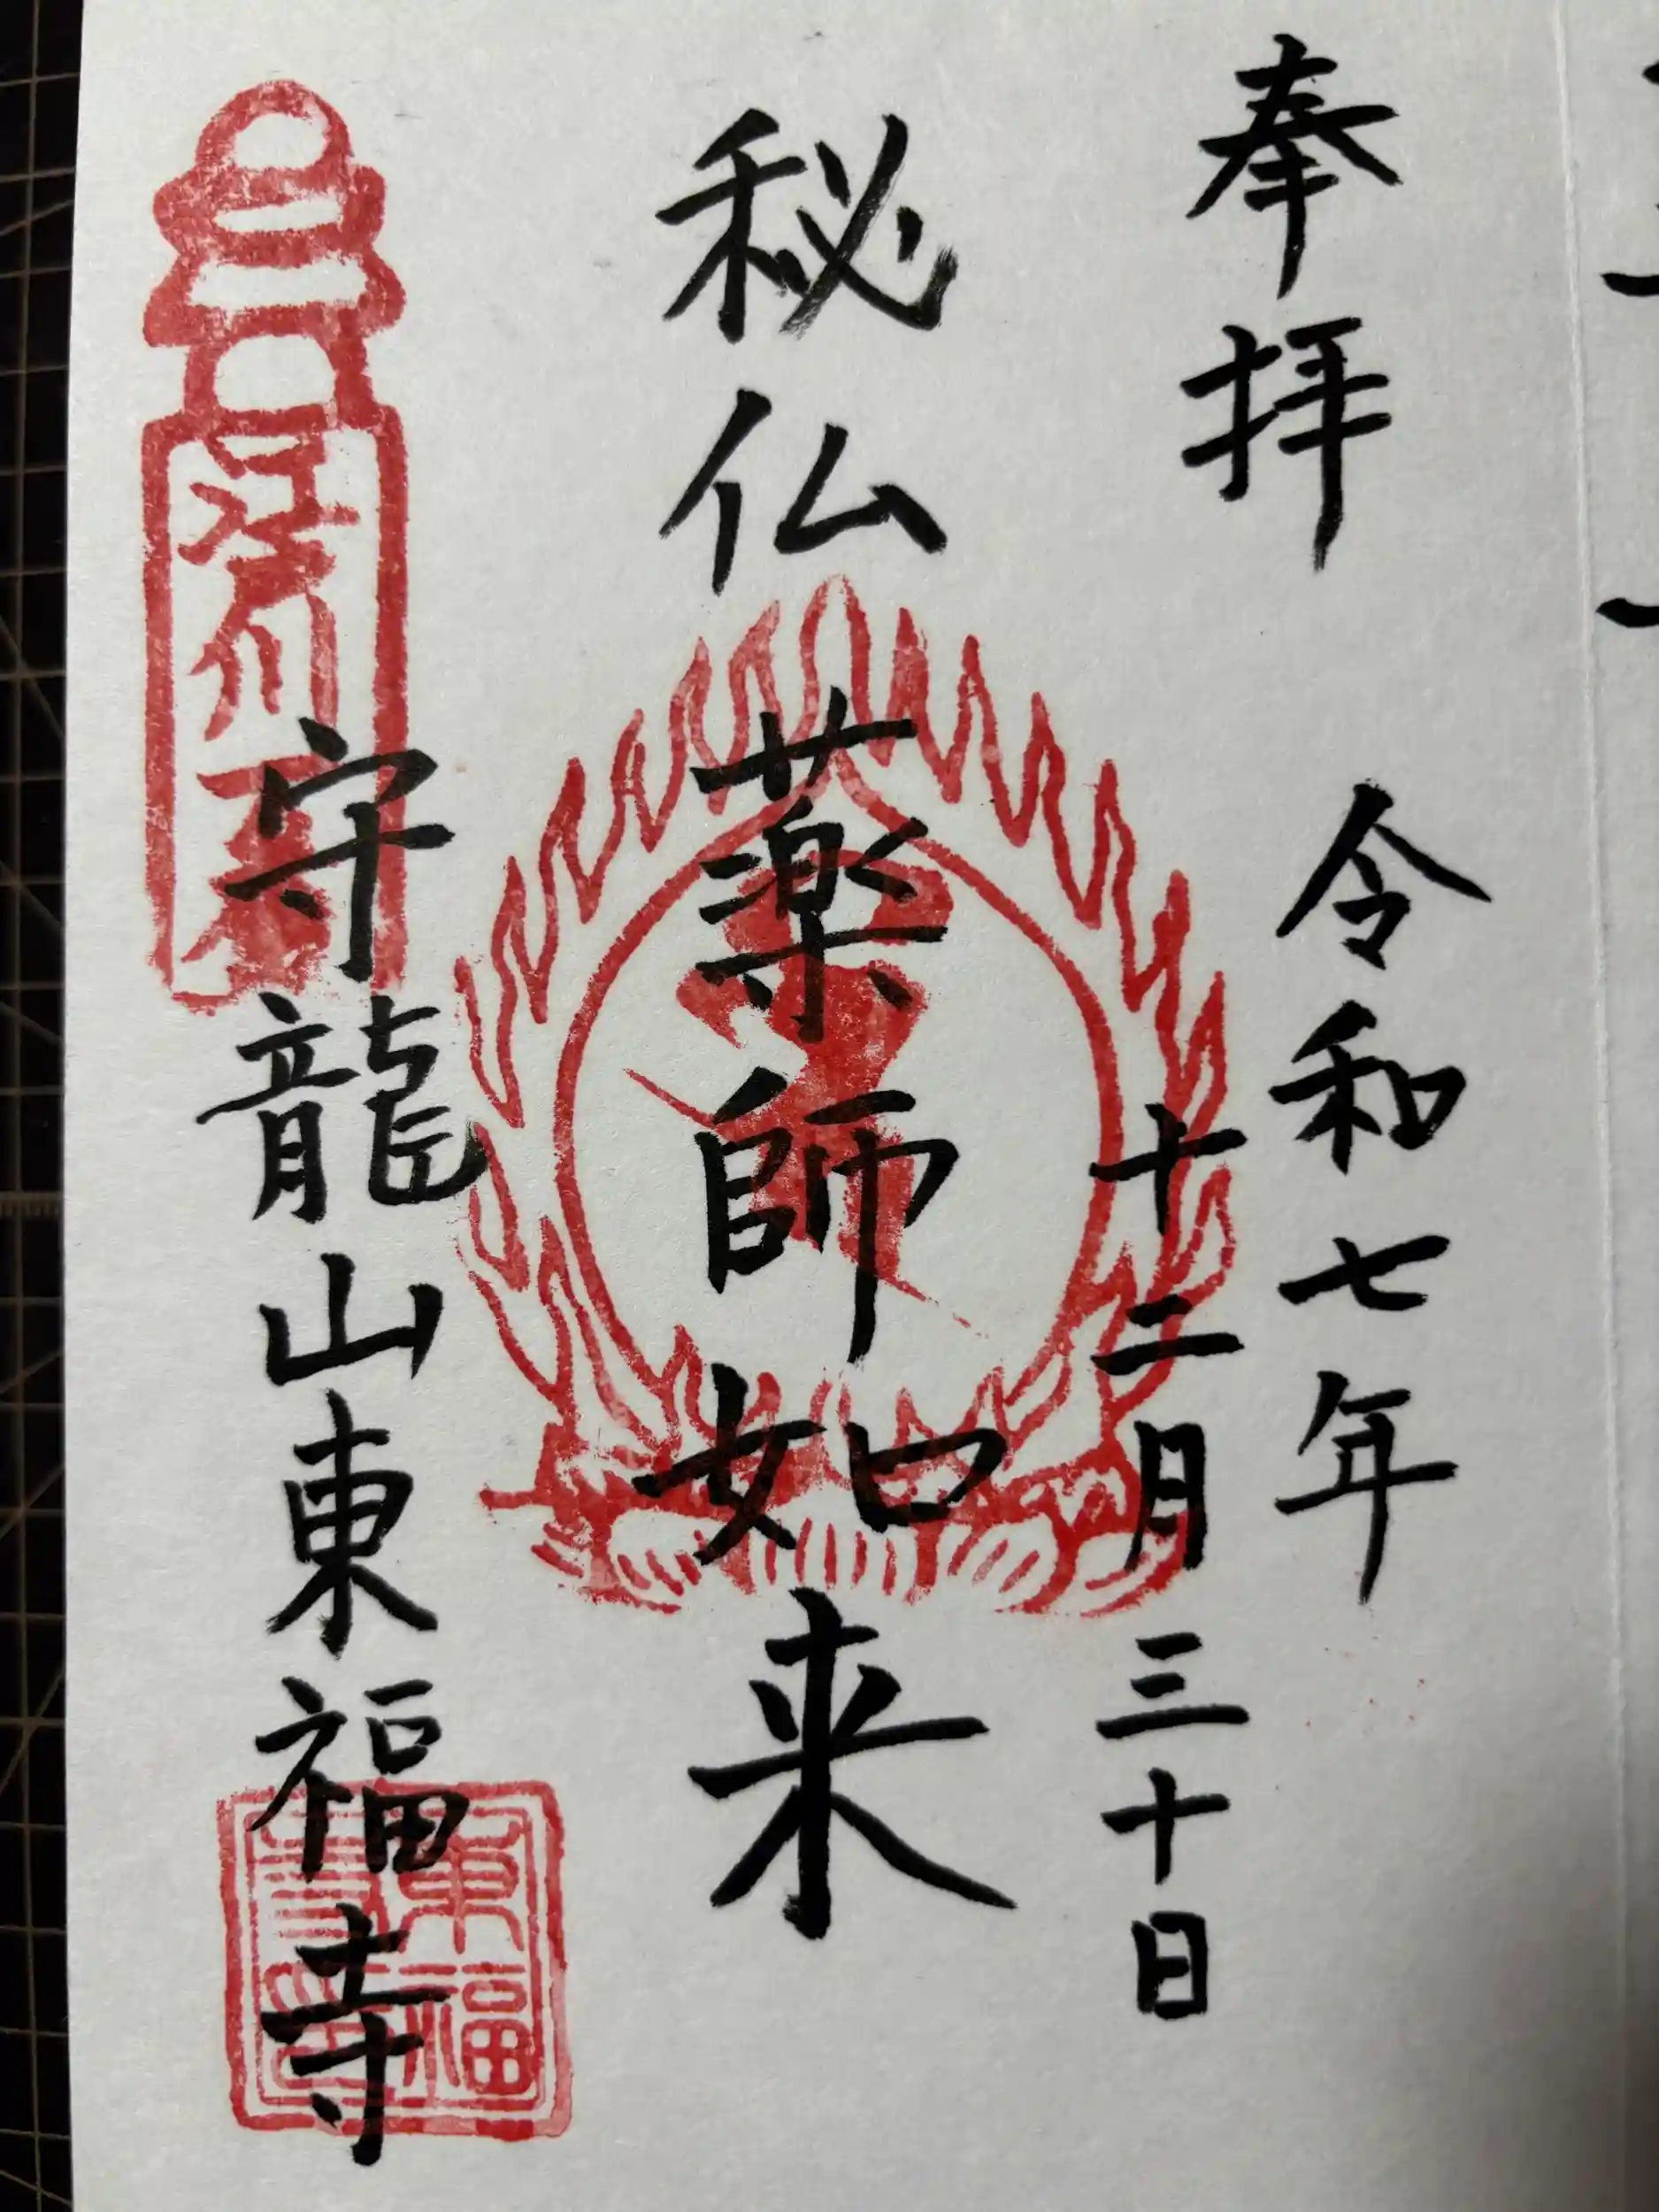 奉拝
令和七年
十二月三十日
秘仏
薬師如来
守龍山東福寺